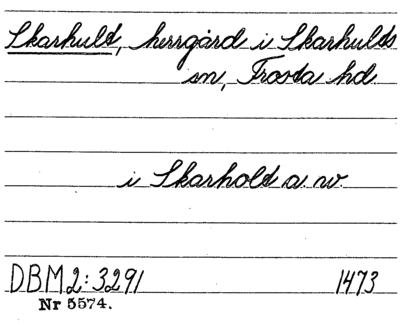 Skarhuld, herrgård i Skarhulds
sn, Frosta hd.
i Skarhold a. w.
DBM 2:3291 1473
Nr 5574.